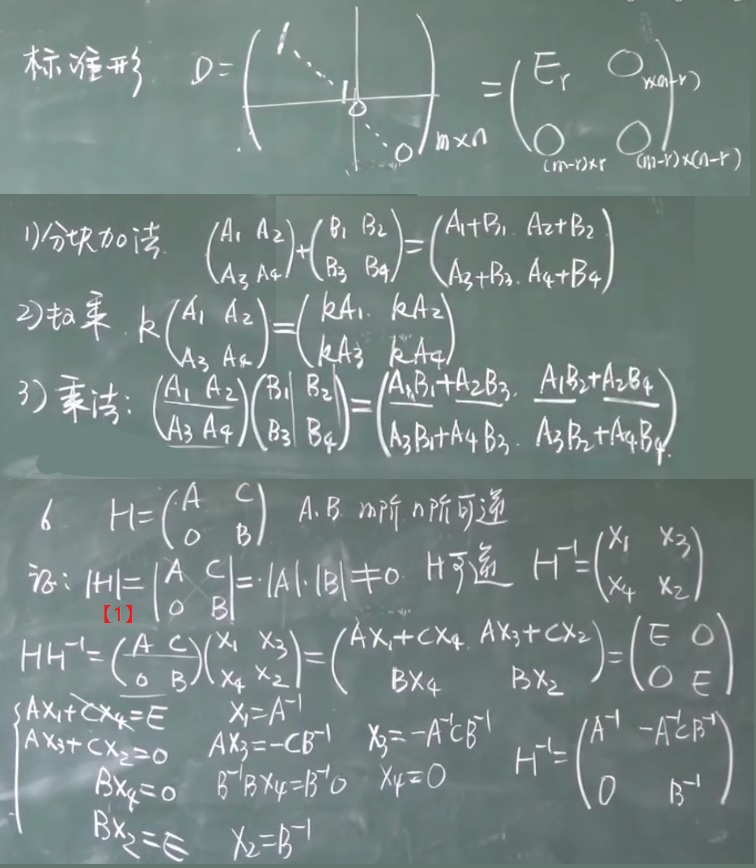 标准形 D = ( 1 ⋱ 1 0 ⋱ 0 )m×n = ( Er Or×(n-r) ; O(m-r)×r O(m-r)×(n-r) )
1)分块加法 (A₁ A₂ ; A₃ A₄) + (B₁ B₂ ; B₃ B₄) = (A₁+B₁ A₂+B₂ ; A₃+B₃ A₄+B₄)
2)数乘 k(A₁ A₂ ; A₃ A₄) = (kA₁ kA₂ ; kA₃ kA₄)
3)乘法: (A₁ A₂ ; A₃ A₄)(B₁ B₂ ; B₃ B₄) = (A₁B₁+A₂B₃ A₁B₂+A₂B₄ ; A₃B₁+A₄B₃ A₃B₂+A₄B₄)
6 H = (A C ; 0 B) A.B. m阶 n阶可逆
证: |H| = |A C ; 0 B| = |A|·|B| ≠ 0 H可逆 H⁻¹ = (X₁ X₃ ; X₄ X₂)
【1】
HH⁻¹ = (A C ; 0 B)(X₁ X₃ ; X₄ X₂) = (AX₁+CX₄ AX₃+CX₂ ; BX₄ BX₂) = (E O ; O E)
AX₁+CX₄=E X₁=A⁻¹
AX₃+CX₂=0 AX₃=-CB⁻¹ X₃=-A⁻¹CB⁻¹ H⁻¹ = (A⁻¹ -A⁻¹CB⁻¹ ; 0 B⁻¹)
BX₄=0 B⁻¹BX₄=B⁻¹0 X₄=0
BX₂=E X₂=B⁻¹